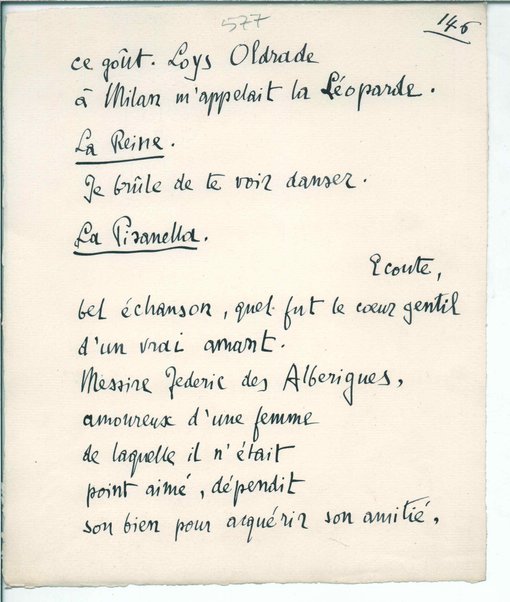 577
146
ce goût. Loys Oldrade
à Milan m'appelait la Léoparde.
La Reine.
Je brûle de te voir danser.
La Pisanella.
Ecoute,
bel échanson, quel fut le cœur gentil
d'un vrai amant.
Messire Federic des Alberigues,
amoureux d'une femme
de laquelle il n'était
point aimé, dépendit
son bien pour acquérir son amitié,